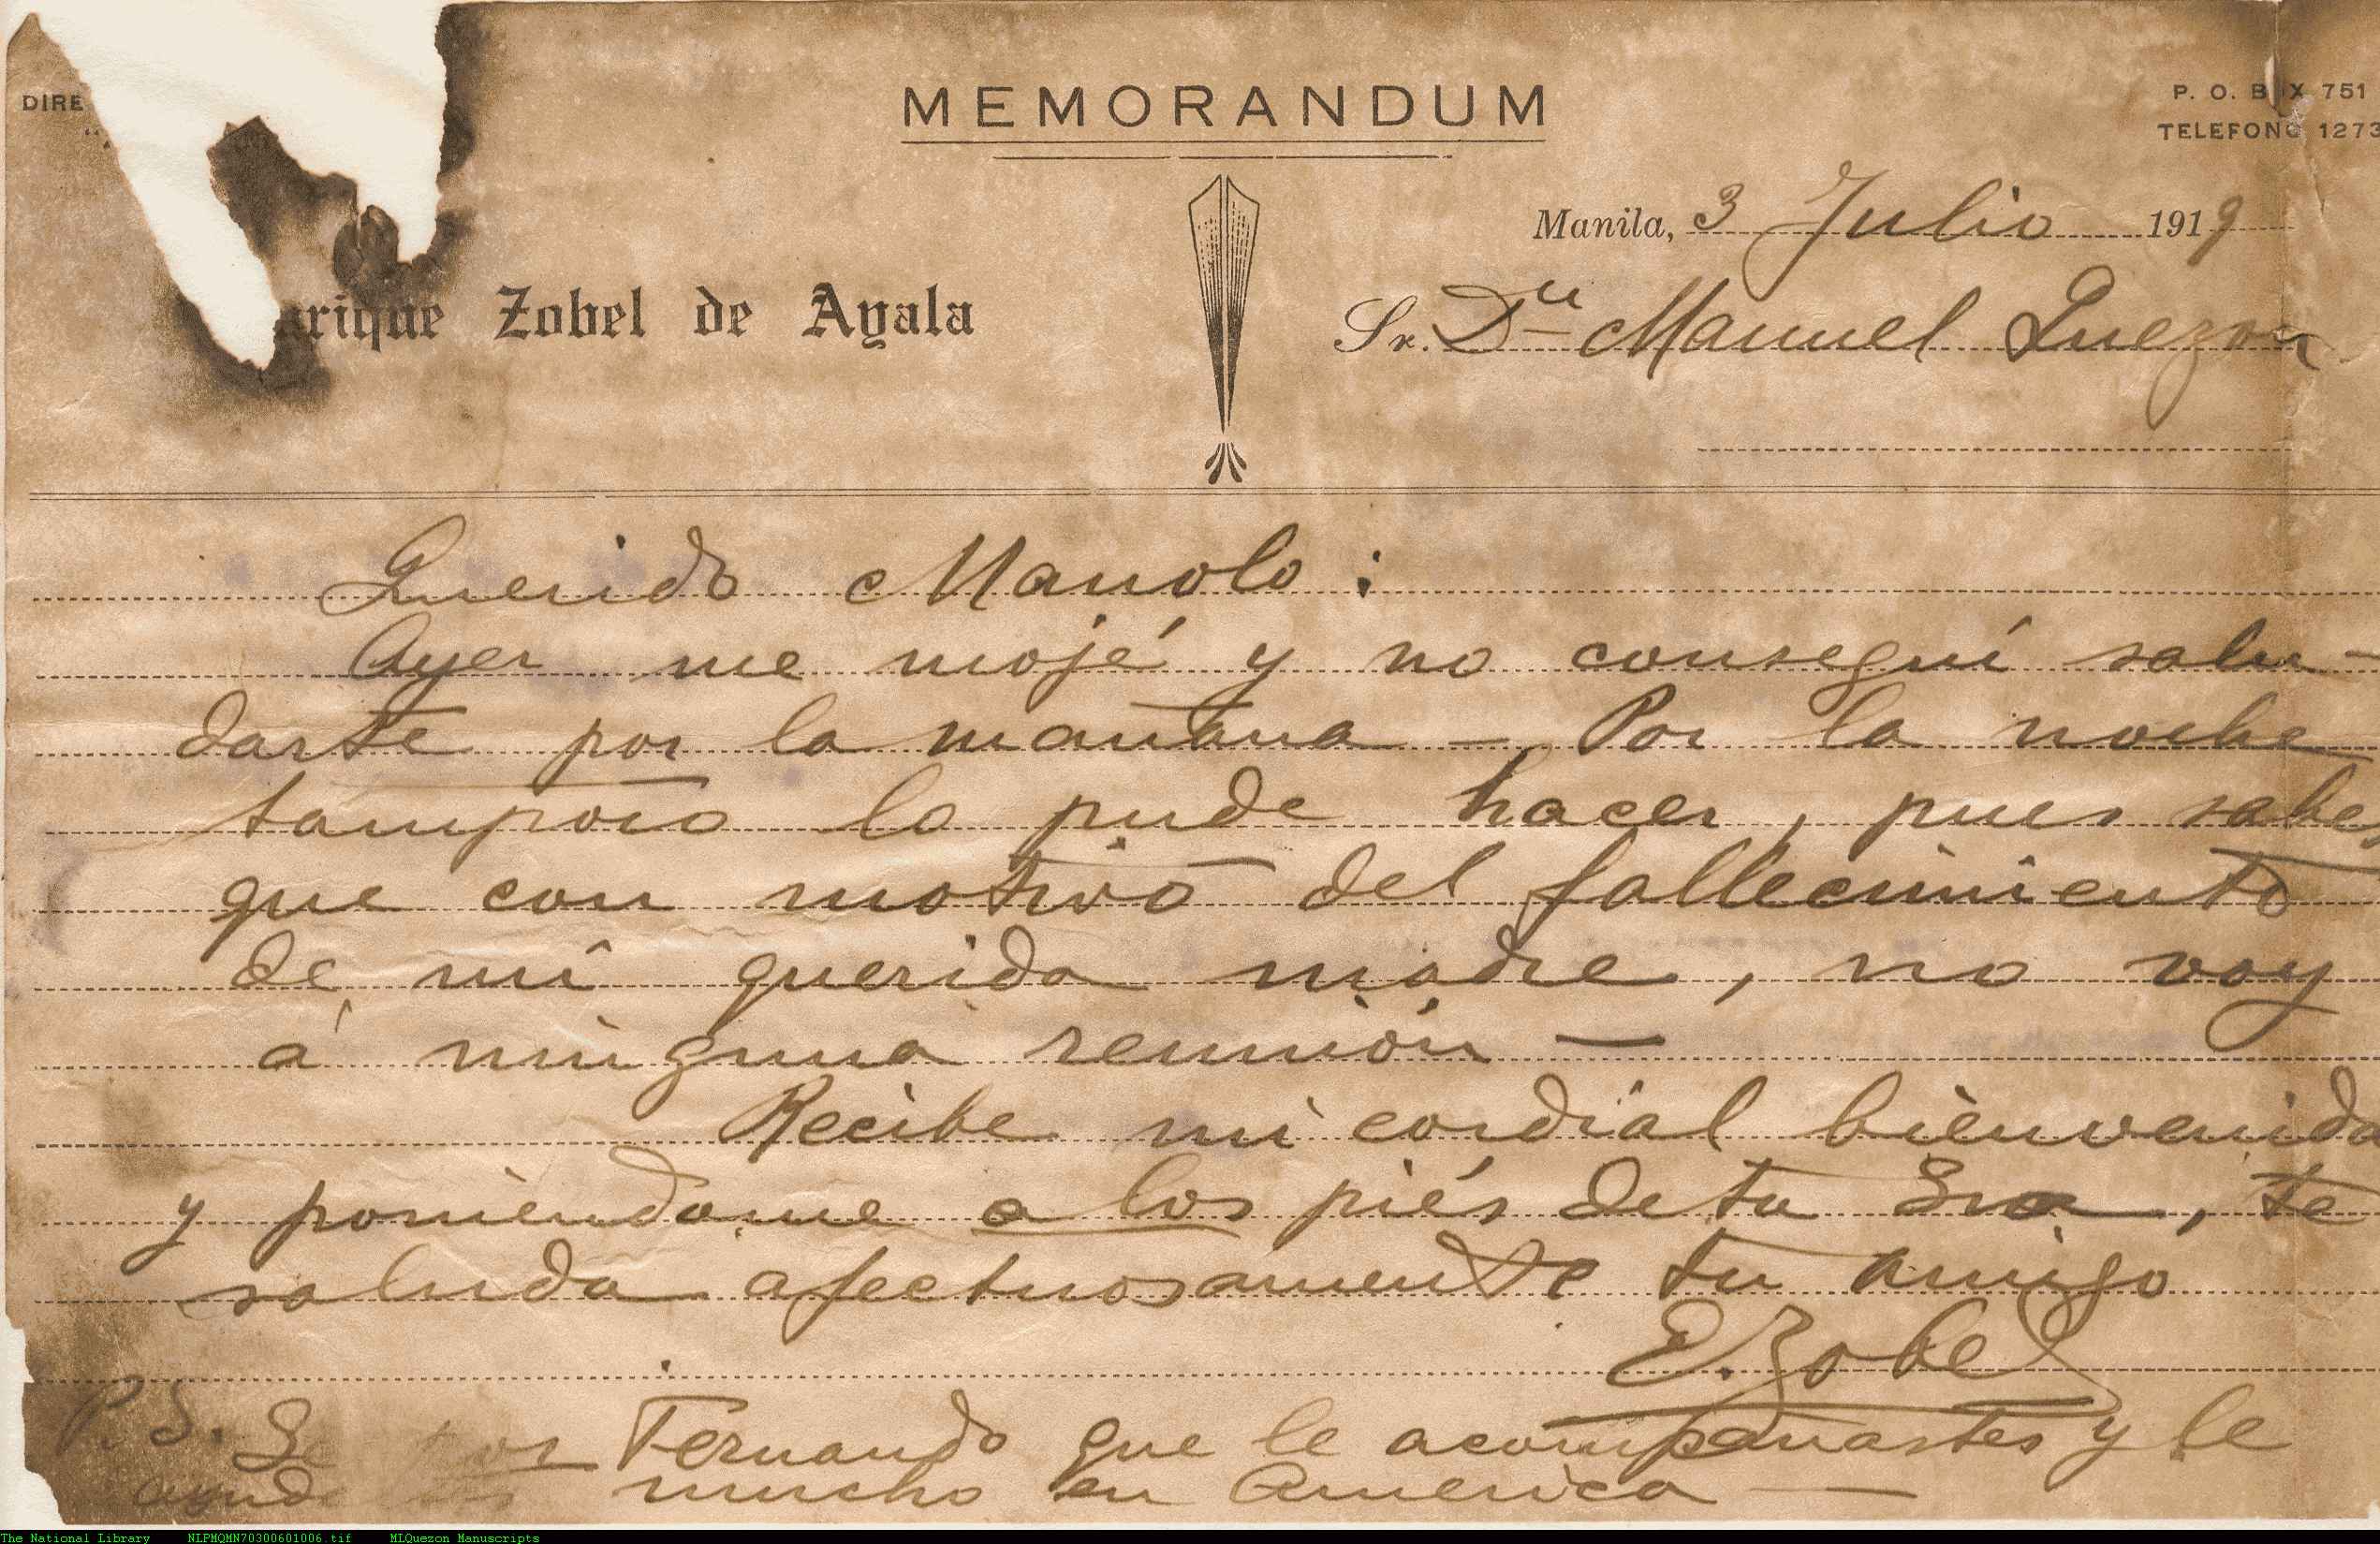 MEMORANDUM
DIRE
P. O. BOX 751
TELEFONO 1273
Manila, 3 Julio 1919
rique Zobel de Ayala
Sr. Dn Manuel Quezon
Querido Manolo:
Ayer me mojé y no conseguí salu-
darte por la mañana — Por la noche
tampoco lo pude hacer, pues sabes
que con motivo del fallecimiento
de mi querida madre, no voy
á ninguna reunión —
Recibe mi cordial bienvenida
y poniendome a los piés de tu Sra, te
saluda afectuosamente tu amigo
E. Zobel
P.S. Se por Fernando que le acompañastes y le
mucho en America —
The National Library NLPMQMN70300601006.tif MLQuezon Manuscripts